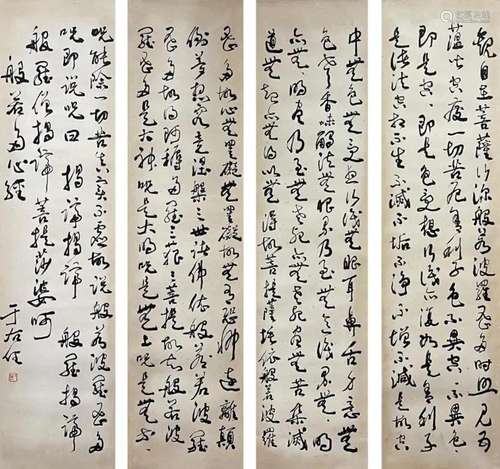 觀自在菩薩行深般若波羅蜜多時照見五
蘊皆空度一切苦厄舍利子色不異空々不異色々
即是空々即是色受想行識亦復如是舍利子
是諸法空相不生不滅不垢不淨不增不減是故空
中無色無受想行識無眼耳鼻舌身意無
色聲香味觸法無眼界乃至無意識界無無明
亦無無明盡乃至無老死亦無老死盡無苦集滅
道無智亦無得以無所得故菩提薩埵依般若波羅
蜜多故心無罣礙無罣礙故無有恐怖遠離顛
倒夢想究竟涅槃三世諸佛依般若波羅
蜜多故得阿耨多羅三藐三菩提故知般若波
羅蜜多是大神咒是大明咒是無上咒是無等々
咒能除一切苦真實不虛故說般若波羅蜜多
咒即說咒曰 揭諦揭諦 般羅揭諦
般羅僧揭諦 菩提莎婆呵
般若多心經
于右任